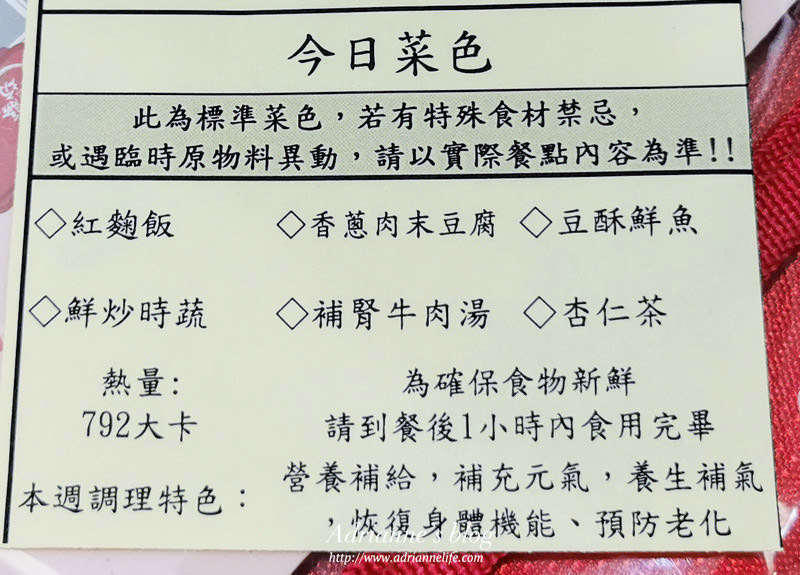 今日菜色
此為標準菜色，若有特殊食材禁忌，
或遇臨時原物料異動，請以實際餐點內容為準!!
◇紅麴飯 ◇香蔥肉末豆腐 ◇豆酥鮮魚
◇鮮炒時蔬 ◇補腎牛肉湯 ◇杏仁茶
熱量:
792大卡
為確保食物新鮮
請到餐後1小時內食用完畢
本週調理特色：
營養補給，補充元氣，養生補氣
，恢復身體機能、預防老化
Adrianne's blog
http://www.adriannelife.com